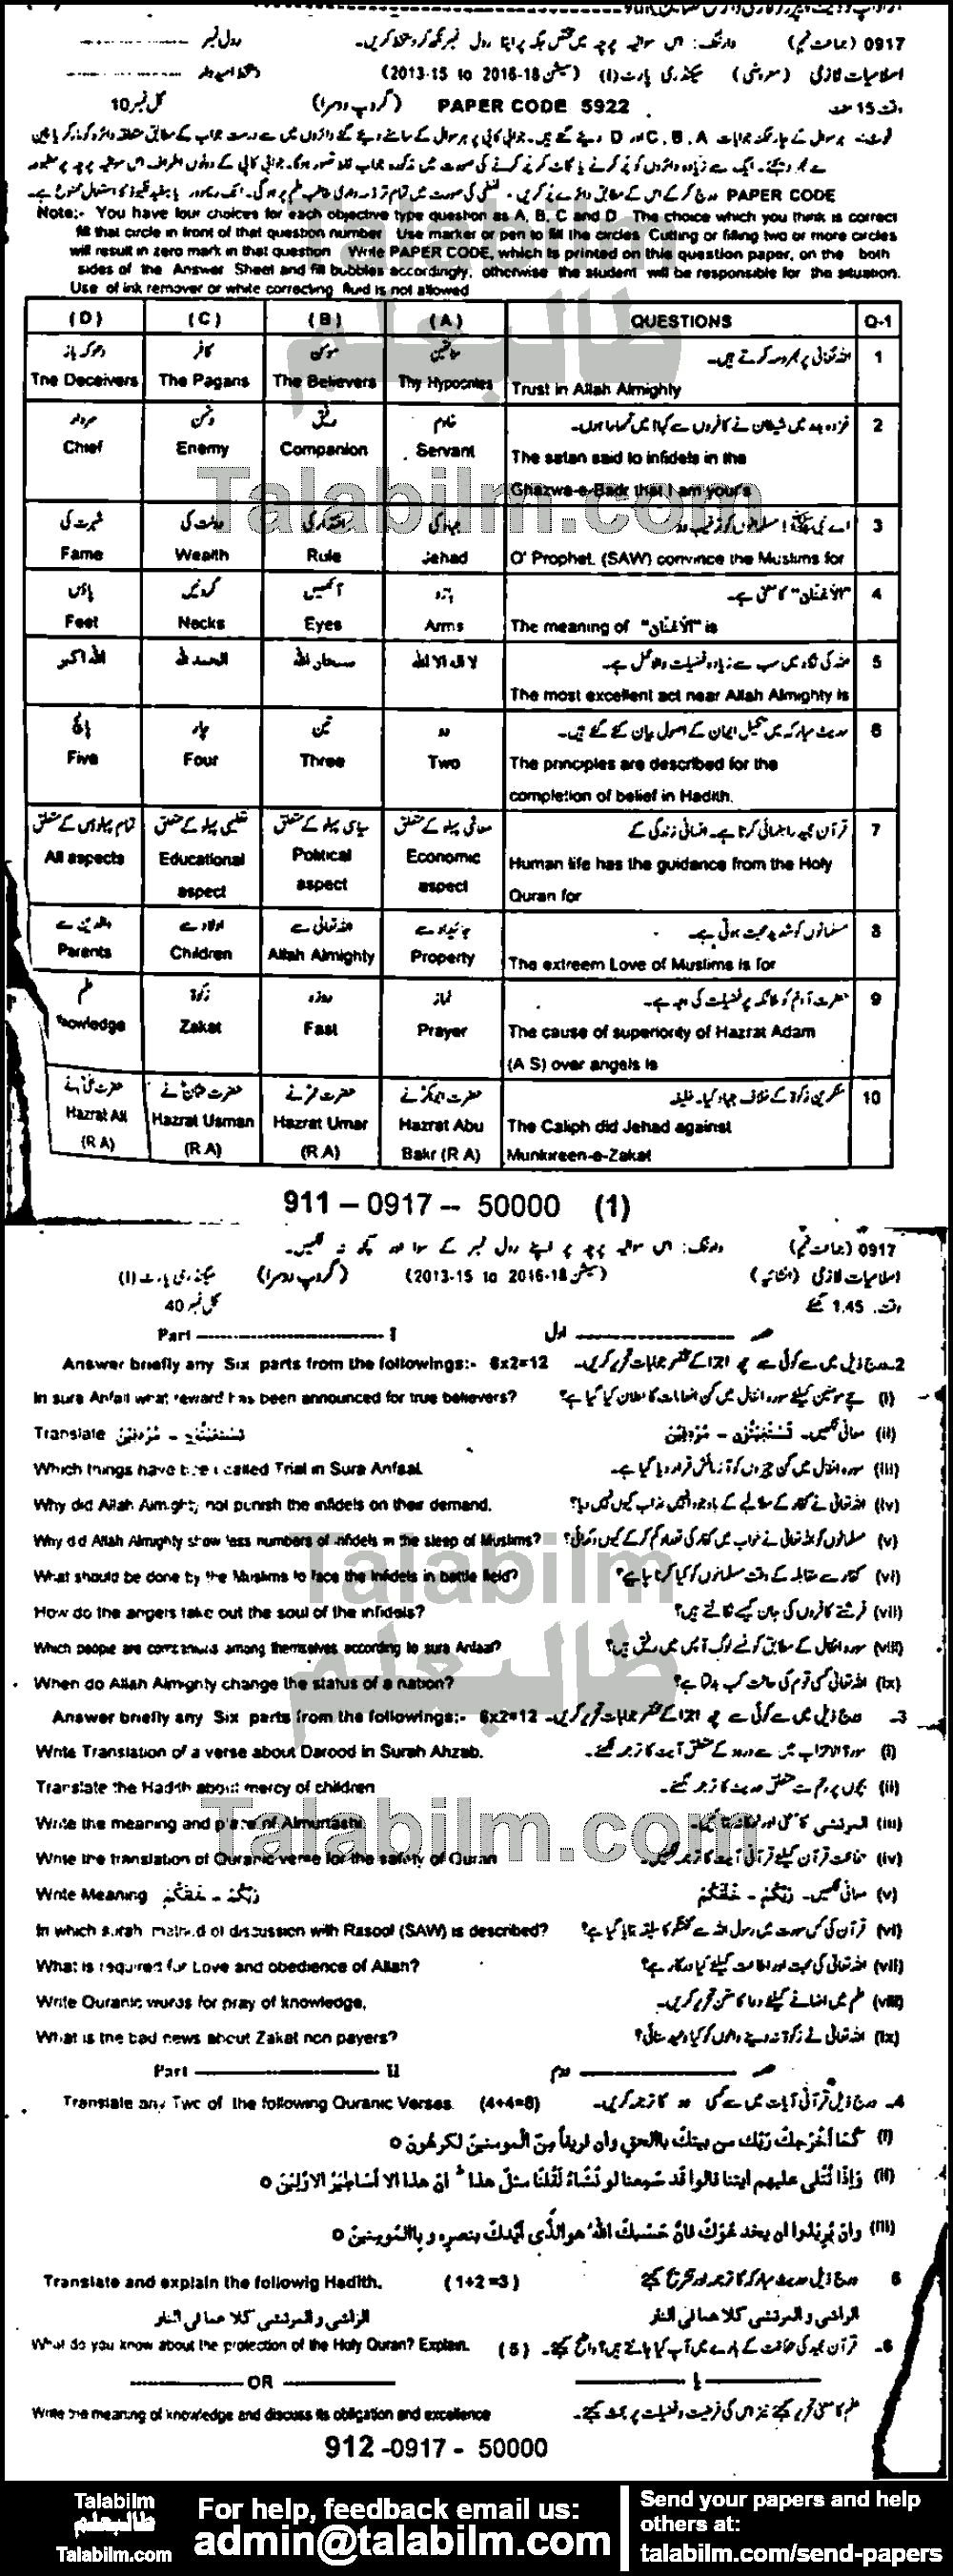 0917 (جماعت نہم) وارننگ: اس سوالیہ پرچہ میں مختص جگہ پر اپنا رول نمبر لکھ کر دستخط کریں۔ رول نمبر
اسلامیات لازمی (معروضی) سیکنڈری پارٹ (I) (سیشن 2013-15 to 2016-18) دستخط امیدوار
وقت 15 منٹ PAPER CODE 5922 (گروپ دوسرا) کل نمبر 10
PAPER CODE
Note:- You have four choices for each objective type question as A, B, C and D The choice which you think is correct
fill that circle in front of that question number Use marker or pen to fill the circles Cutting or filling two or more circles
will result in zero mark in that question Write PAPER CODE, which is printed on this question paper, on the both
sides of the Answer Sheet and fill bubbles accordingly, otherwise the student will be responsible for the situation.
Use of ink remover or white correcting fluid is not allowed
(D) (C) (B) (A) QUESTIONS Q-1
دھوکہ باز کافر مومن منافقین اللہ تعالیٰ پر بھروسہ کرتے ہیں۔ 1
The Deceivers The Pagans The Believers Thy Hypocrites Trust in Allah Almighty
سردار دشمن رفیق خادم غزوہ بدر میں شیطان نے کافروں سے کہا میں تمہارا ہوں۔ 2
Chief Enemy Companion Servant The satan said to infidels in the
Ghazwa-e-Badr that I am yours
شہرت کی دولت کی اقتدار کی جہاد کی اے نبی ﷺ! مسلمانوں کو ترغیب دو 3
Fame Wealth Rule Jehad O' Prophet. (SAW) convince the Muslims for
پاؤں گردنیں آنکھیں بازو "الاعناق" کا معنی ہے۔ 4
Feet Necks Eyes Arms The meaning of "الاعناق" is
اللہ اکبر الحمد للہ سبحان اللہ لا الہ الا اللہ 5
The most excellent act near Allah Almighty is
پانچ چار تین دو حدیث مبارکہ میں تکمیل ایمان کے اصول بیان کئے گئے ہیں۔ 6
Five Four Three Two The principles are described for the
completion of belief in Hadith.
تمام پہلوؤں کے متعلق تعلیمی پہلو کے متعلق سیاسی پہلو کے متعلق معاشی پہلو کے متعلق قرآن مجید راہنمائی کرتا ہے۔ انسانی زندگی کے 7
All aspects Educational aspect Political aspect Economic aspect Human life has the guidance from the Holy
Quran for
والدین سے اولاد سے اللہ تعالیٰ سے جائیداد سے مسلمانوں کو شدید محبت ہوتی ہے۔ 8
Parents Children Allah Almighty Property The extreem Love of Muslims is for
علم زکوٰۃ روزہ نماز حضرت آدم کو ملائکہ پر فضیلت کی وجہ ہے۔ 9
knowledge Zakat Fast Prayer The cause of superiority of Hazrat Adam
(A S) over angels is
حضرت علی نے حضرت عثمان نے حضرت عمر نے حضرت ابوبکر نے منکرین زکوٰۃ کے خلاف جہاد کیا۔ خلیفہ 10
Hazrat Ali (R A) Hazrat Usman (R A) Hazrat Umar (R A) Hazrat Abu Bakr (R A) The Caliph did Jehad against
Munkireen-e-Zakat
911 – 0917 -- 50000 (1)
0917 (جماعت نہم) وارننگ: اس سوالیہ پرچہ پر اپنے رول نمبر کے سوا اور کچھ نہ لکھیں۔
اسلامیات لازمی (انشائیہ) (سیشن 2013-15 to 2016-18) (گروپ دوسرا) سیکنڈری پارٹ (I)
وقت 1.45 گھنٹے کل نمبر 40
Part I حصہ اول
Answer briefly any Six parts from the followings:- 6x2=12 2- درج ذیل میں سے کوئی سے چھ اجزا کے مختصر جوابات تحریر کریں۔
In sura Anfall what reward has been announced for true believers? (i)
Translate تَسْتَغِيثُونَ - مُرْدِفِينَ (ii) معانی لکھیں۔ تَسْتَغِيثُونَ - مُرْدِفِينَ
Which things have been called Trial in Sura Anfaal. (iii) سورہ انفال میں کن چیزوں کو آزمائش قرار دیا گیا ہے۔
Why did Allah Almighty not punish the infidels on their demand. (iv)
Why did Allah Almighty show less numbers of infidels in the sleep of Muslims? (v)
What should be done by the Muslims to face the Infidels in battle field? (vi) کفار سے مقابلہ کے وقت مسلمانوں کو کیا کرنا چاہیے؟
How do the angels take out the soul of the infidels? (vii) فرشتے کافروں کی جان کیسے نکالتے ہیں؟
Which people are companions among themselves according to sura Anfaal? (viii)
When do Allah Almighty change the status of a nation? (ix) اللہ تعالیٰ کسی قوم کی حالت کب بدلتا ہے؟
Answer briefly any Six parts from the followings:- 6x2=12 3- درج ذیل میں سے کوئی سے چھ اجزا کے مختصر جوابات تحریر کریں۔
Write Translation of a verse about Darood in Surah Ahzab. (i) سورۃ الاحزاب میں سے درود کے متعلق آیت کا ترجمہ لکھیے۔
Translate the Hadith about mercy of children (ii) بچوں پر رحم سے متعلق حدیث کا ترجمہ لکھیے۔
Write the meaning and place of Almurtashi. (iii)
Write the translation of Quranic verse for the safety of Quran (iv) حفاظت قرآن کیلئے قرآنی آیت کا ترجمہ لکھیں۔
Write Meaning (v) معانی لکھیں۔
In which surah method of discussion with Rasool (SAW) is described? (vi) قرآن کی کس سورت میں رسول اللہ سے گفتگو کا طریقہ بتایا گیا ہے؟
What is required for Love and obedience of Allah? (vii) اللہ تعالیٰ کی محبت اور اطاعت کیلئے کیا درکار ہے؟
Write Quranic words for pray of knowledge. (viii) علم میں اضافے کیلئے دعا کا متن تحریر کریں۔
What is the bad news about Zakat non payers? (ix) اللہ تعالیٰ نے زکوٰۃ نہ دینے والوں کو کیا وعید سنائی؟
Part II حصہ دوم
Translate any Two of the following Quranic Verses. (4+4=8) 4- درج ذیل قرآنی آیات میں سے کسی دو کا ترجمہ کریں۔
(i) كَمَا أَخْرَجَكَ رَبُّكَ من بيتك بالحق وان فريقاً مِنَ المومنين لكرهون ٥
(ii) وَإِذَا تُتْلَى عليهم ايتنا قالوا قد سمعنا لو نشاء لقلنا مثل هذا ان هذا الا اساطير الاولين ٥
(iii) وان يريدوا ان يخدعوك فان حسبك الله هو الذي ايدك بنصره و بالمومنين ٥
Translate and explain the followig Hadith. (1+2=3) 5 درج ذیل حدیث مبارکہ کا ترجمہ اور تشریح کیجئے
الراشی و المرتشی کلا ھما فی النار الراشی و المرتشی کلا ھما فی النار
What do you know about the protection of the Holy Quran? Explain. (5) 6- قرآن مجید کی حفاظت کے بارے میں آپ کیا جانتے ہیں؟ واضح کیجئے۔
OR یا
Write the meaning of knowledge and discuss its obligation and excellence علم کا معنی تحریر کیجئے نیز اس کی فرضیت و فضیلت پر بحث کیجئے۔
912 -0917 - 50000
Talabilm
طالبعلم
Talabilm.com
For help, feedback email us:
admin@talabilm.com
Send your papers and help
others at:
talabilm.com/send-papers